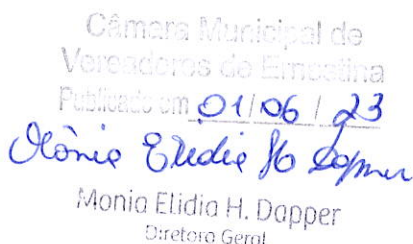 Câmara Municipal de
Vereadores de Ernestina
Publicado em 01/06/23
Mônia Elidia H. Dapper
Monia Elidia H. Dapper
Diretora Geral